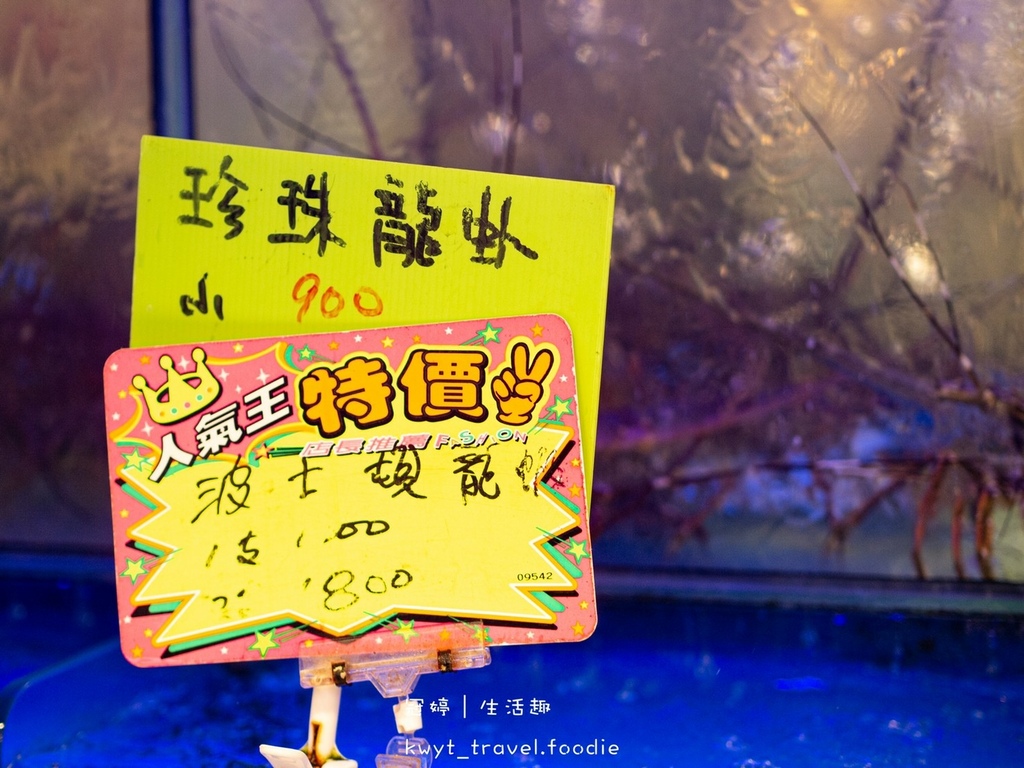 珍珠龍蝦
小 900
人氣王 特價
店長推薦 FASHION
波士頓龍蝦
1支
800
09542
生活趣
kwyt_travel.foodie